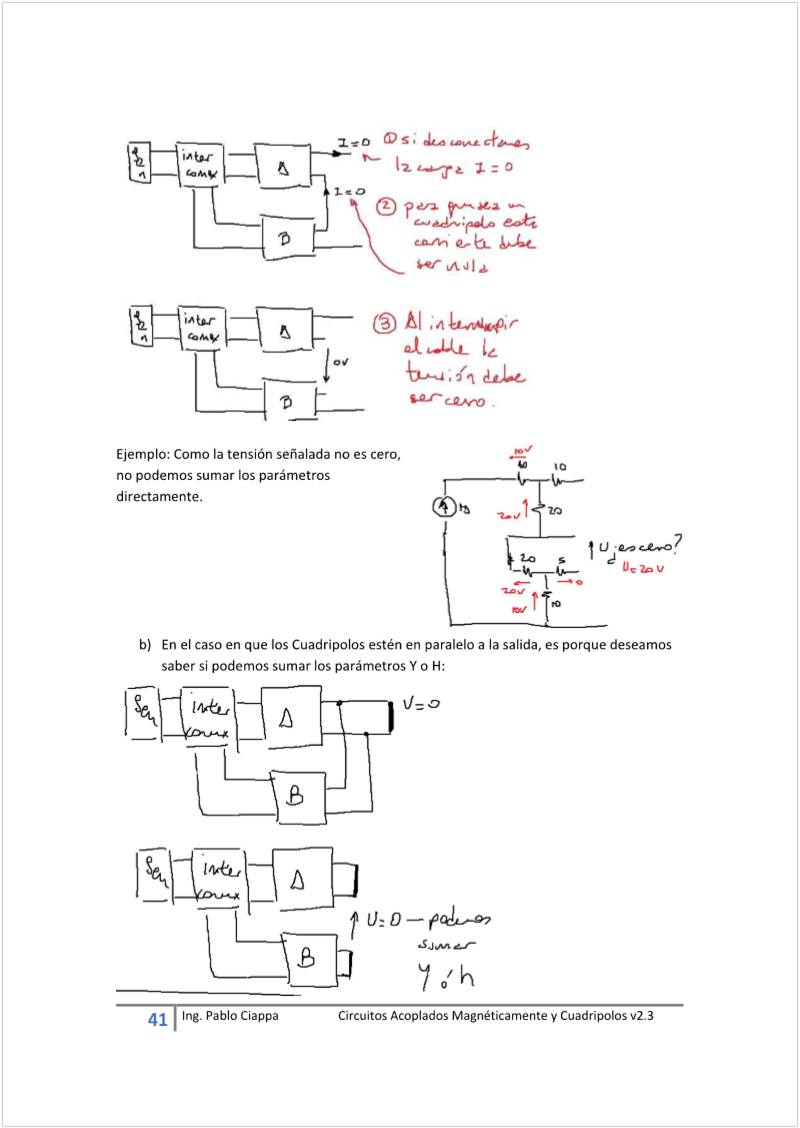 Gen
inter
conex
A
I=0
① si desconectamos
la carga I=0
I=0
② para que sea un
cuadripolo esta
corriente debe
ser nula
B
Gen
inter
conex
A
0V
B
③ Al interrumpir
el cable la
tensión debe
ser cero.
Ejemplo: Como la tensión señalada no es cero,
no podemos sumar los parámetros
directamente.
10V
10
10
20V
20
20
5
U ¿es cero?
U=20V
20V
0
10V
10
b) En el caso en que los Cuadripolos estén en paralelo a la salida, es porque deseamos
saber si podemos sumar los parámetros Y o H:
Gen
inter
conex
A
V=0
B
Gen
inter
conex
A
B
U=0 — podemos
sumar
Y ó h
41
Ing. Pablo Ciappa
Circuitos Acoplados Magnéticamente y Cuadripolos v2.3